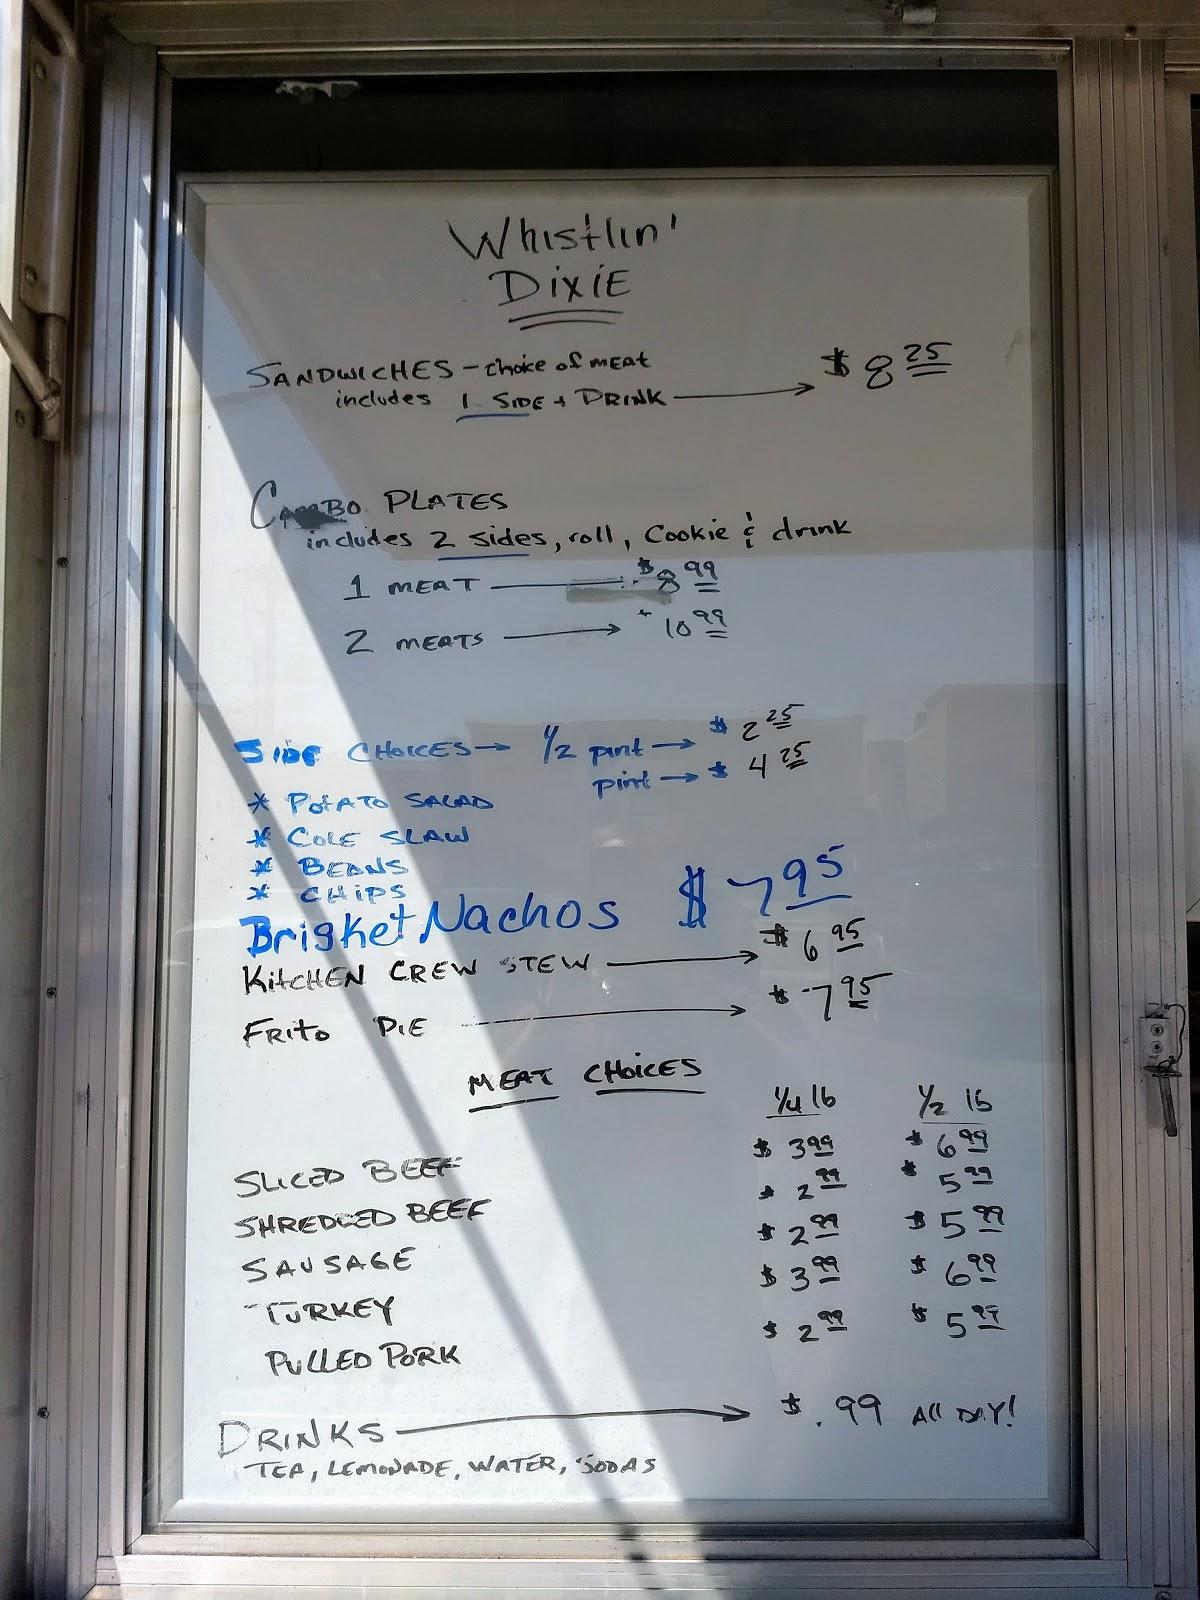 Whistlin'
Dixie
SANDWICHES - choice of meat $ 8 25
includes 1 SIDE + DRINK
COMBO PLATES
includes 2 sides, roll, Cookie & drink
1 MEAT $ 8 99
2 MEATS $ 10 99
SIDE CHOICES → 1/2 pint → $ 2 25
pint → $ 4 25
* POTATO SALAD
* COLE SLAW
* BEANS
* CHIPS
Brisket Nachos $ 7 95
KitCHEN CREW STEW → $ 6 95
FRito PiE → $ 7 95
MEAT CHOICES
1/4 lb 1/2 lb
SLICED BEEF $ 3 99 $ 6 99
SHREDDED BEEF $ 2 99 $ 5 99
SAUSAGE $ 2 99 $ 5 99
TURKEY $ 3 99 $ 6 99
PULLED PORK $ 2 99 $ 5 99
DRINKS → $ .99 All DAY!
TEA, LEMONADE, WATER, SODAS